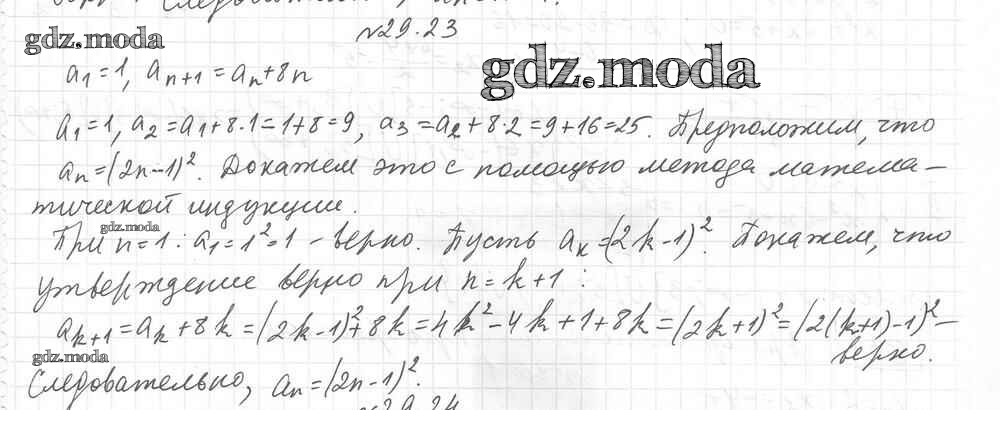 №29.23
gdz.moda
gdz.moda
a₁=1, aₙ₊₁=aₙ+8n
a₁=1, a₂=a₁+8·1=1+8=9, a₃=a₂+8·2=9+16=25. Предположим, что
aₙ=(2n-1)². Докажем это с помощью метода матема-
тической индукции.
gdz.moda
При n=1: a₁=1²=1 - верно. Пусть aₖ=(2k-1)². Покажем, что
утверждение верно при n=k+1:
aₖ₊₁=aₖ+8k=(2k-1)²+8k=4k²-4k+1+8k=(2k+1)²=(2(k+1)-1)²-
верно.
gdz.moda
Следовательно, aₙ=(2n-1)².
№29.24